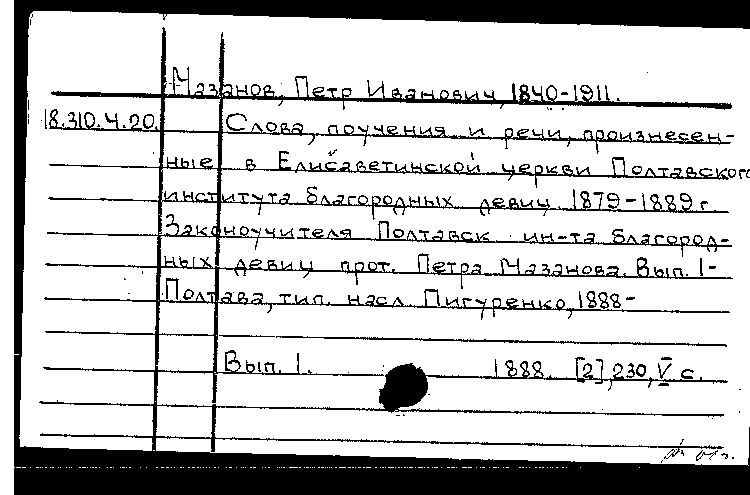 Мазанов, Петр Иванович, 1840-1911.
18.310.4.20. Слова, поучения и речи, произнесен-
ные в Елисаветинской церкви Полтавского
института благородных девиц 1879-1889 г.
Законоучителя Полтавск. ин-та благород-
ных девиц прот. Петра Мазанова. Вып. 1-
Полтава, тип. насл. Пигуренко, 1888-
Вып. 1. 1888. [2], 230, V с.